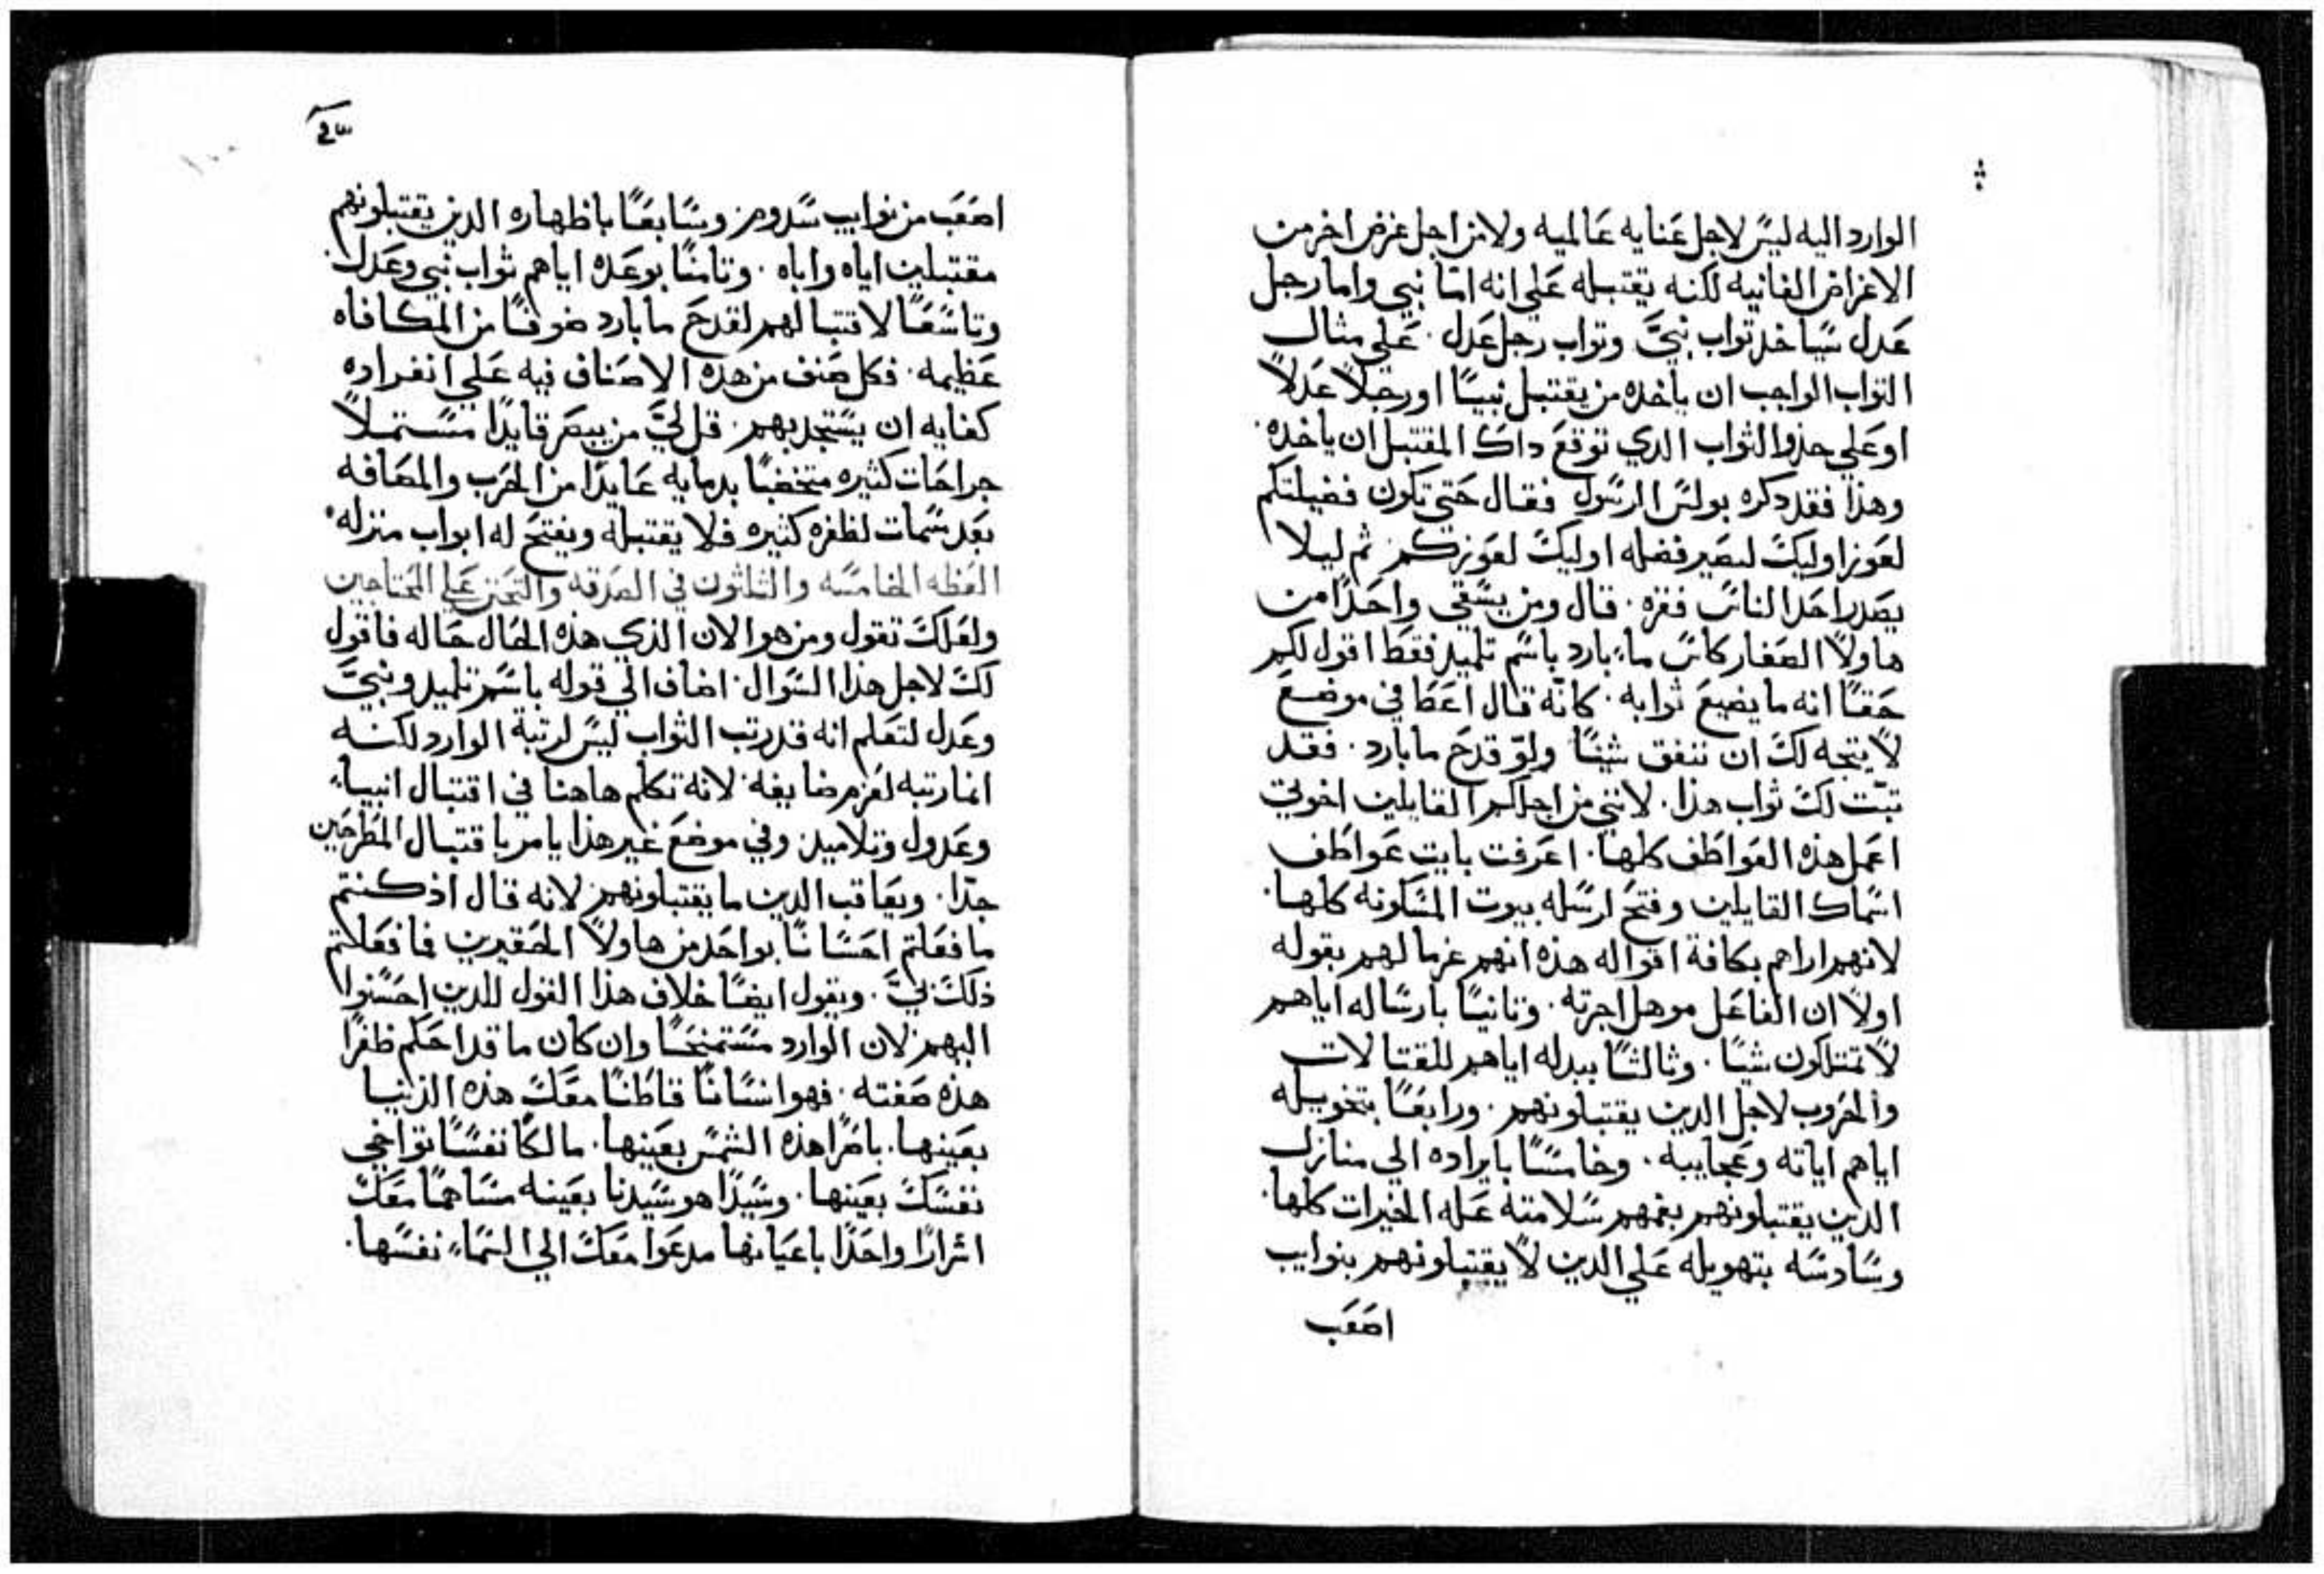 الوارد اليه ليس لاجل عنايه عالميه ولا من اجل غرض اخر من
الاغراض الفانيه لكنه يقتبله علي انه امّا نبي واما رجل
عدل سياخد تواب نبيّ وتواب رجل عدل . علي مثال
التواب الواجب ان ياخده من يقتبل نبيًا او رجلاً عدلاً
او علي حذو الثواب الدي توقع داك المقتبل ان ياخده .
وهذا فقد دكره بولس الرسول فقال حتي تكون فضيلتكم
لعوز اوليك لتصير فضله اوليك لعوزكم ثم ليلا
يصدر احد الناس فقره . قال ومن يسقي واحدًا من
هاولاً الصغار كاس ماء بارد باسم تلميد فقط اقول لكم
حقًا انه ما يضيع ثوابه . كانّه قال اعطا في موضع
لا يتجه لك ان تنفق شيئًا ولو قدح ما بارد . فقد
تبتت لك ثواب هذا . لانني من اجلكم القايلين اخوتي
اعمل هذه العواطف كلها . اعرفت بايت عواطف
اسماك القايلين وفتح لرسله بيوت المسكونه كلها .
لانهم اراهم بكافة اقواله هذه انهم غرما لهم بقوله
اولاً ان الفاعل موهل اجرته . وتانيًا بارساله اياهم
لا تمتلكون شيًا . وثالثًا ببدله اياهم للقتالات
والحروب لاجل الدين يقتبلونهم . ورابعًا بتخويله
اياهم اياته وعجايبه . وخامسًا بايراده الي منازل
الدين يقتبلونهم بفمهم سلامته عله الخيرات كلها .
وسادسه بتهويله علي الدين لا يقتبلونهم بنوايب
اصعب
اصعب من نوايب سدوم وسابعًا باظهاره الدين يقتبلونهم
مقتبلين اياه واباه . وتامنًا بوعده اياهم ثواب نبي وعدل .
وتاسعًا لاقتبالهم لقدح ما بارد صنوفًا من المكافاه
عظيمه . فكل صنف من هذه الاصناف فيه علي انفراده
كفايه ان يستجد بهم . قل ليّ من يبصر قايدًا مستملاً
جراحات كثيره متخضبًا بدمايه عايدًا من الحرب والمصافه
بعد سمات لظفره كثيره فلا يقتبله ويفتح له ابواب منزله .
العظه الخامسه والثلثون في الصدقه والتحنن علي المحتاجين
ولعلك تقول ومن هو الان الذي هذه الحال حاله فاقول
لك لاجل هذا السوال اضاف الي قوله باسم تلميد ونبيّ
وعدل لتعلم انه قد رتب الثواب ليس لرتبة الوارد لكنه
انما رتبه لعزم ضايفه لانه تكلم هاهنا في اقتبال انبياء
وعدول وتلاميد وفي موضع غير هذا يامر باقتبال المطرحين
جدًا . ويعاقب الدين ما يقتبلونهم لانه قال اذ كنتم
ما فعلتم احسانًا بواحد من هاولاً الحقيرين فما فعلتم
ذلك ليّ . ويقول ايضًا خلاف هذا القول للدين احسنوا
اليهم لان الوارد مستمنحًا وان كان ما قد احكم ظفرًا
هذه صفته . فهو انسانًا قاطنًا معك هذه الدنيا
بعينها . باصرًا هذه الشمس بعينها . مالكًا نفسًا تواخي
نفسك بعينها . وسيدًا هو سيدنا بعينه مساهمًا معك
اسرارًا واحدًا باعيانها مدعوا معك الي السماء نفسها .